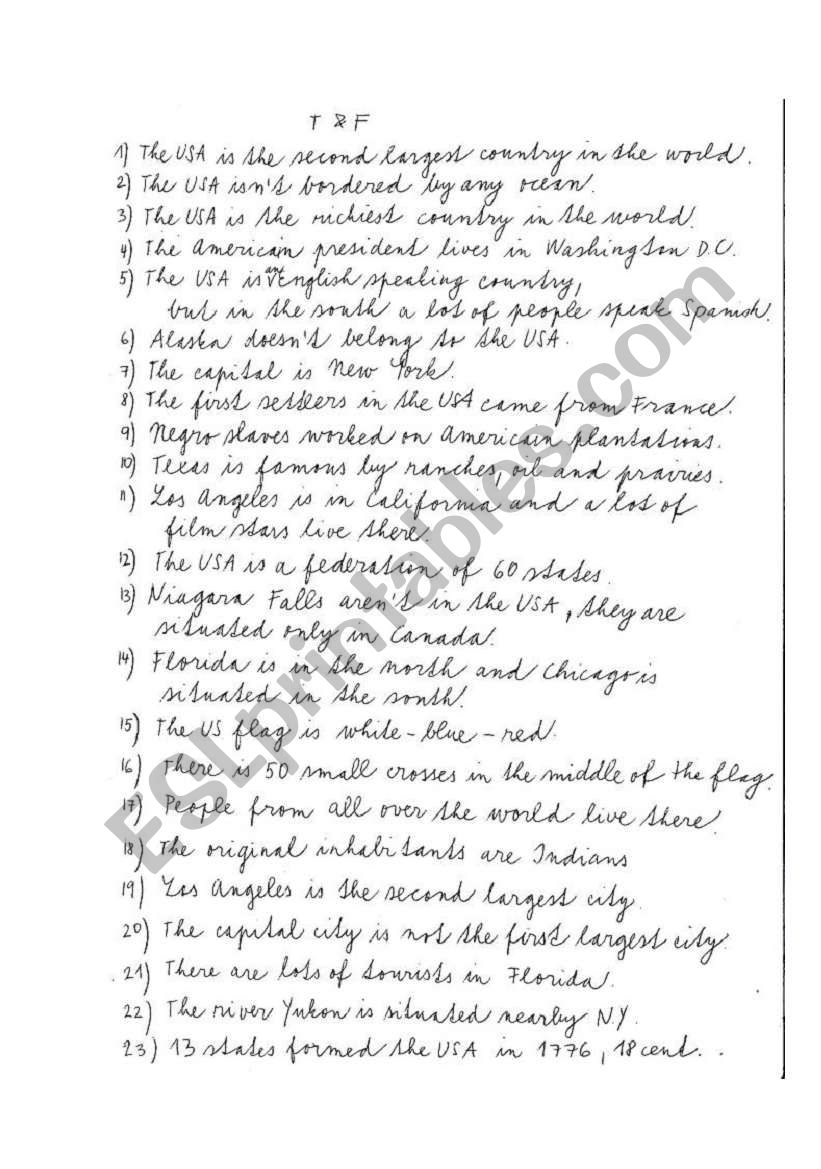 T & F
1) The USA is the second largest country in the world.
2) The USA isn't bordered by any ocean.
3) The USA is the richiest country in the world.
4) The American president lives in Washington D.C.
5) The USA is an English speaking country,
but in the south a lot of people speak Spanish.
6) Alaska doesn't belong to the USA.
7) The capital is New York.
8) The first settlers in the USA came from France.
9) Negro slaves worked on American plantations.
10) Texas is famous by ranches, oil and prairies.
11) Los Angeles is in California and a lot of
film stars live there.
12) The USA is a federation of 60 states.
13) Niagara Falls aren't in the USA, they are
situated only in Canada.
14) Florida is in the north and Chicago is
situated in the south.
15) The US flag is white - blue - red.
16) There is 50 small crosses in the middle of the flag.
17) People from all over the world live there.
18) The original inhabitants are Indians
19) Los Angeles is the second largest city.
20) The capital city is not the first largest city.
21) There are lots of tourists in Florida.
22) The river Yukon is situated nearby N.Y.
23) 13 states formed the USA in 1776, 18 cent..
ESLprintables.com